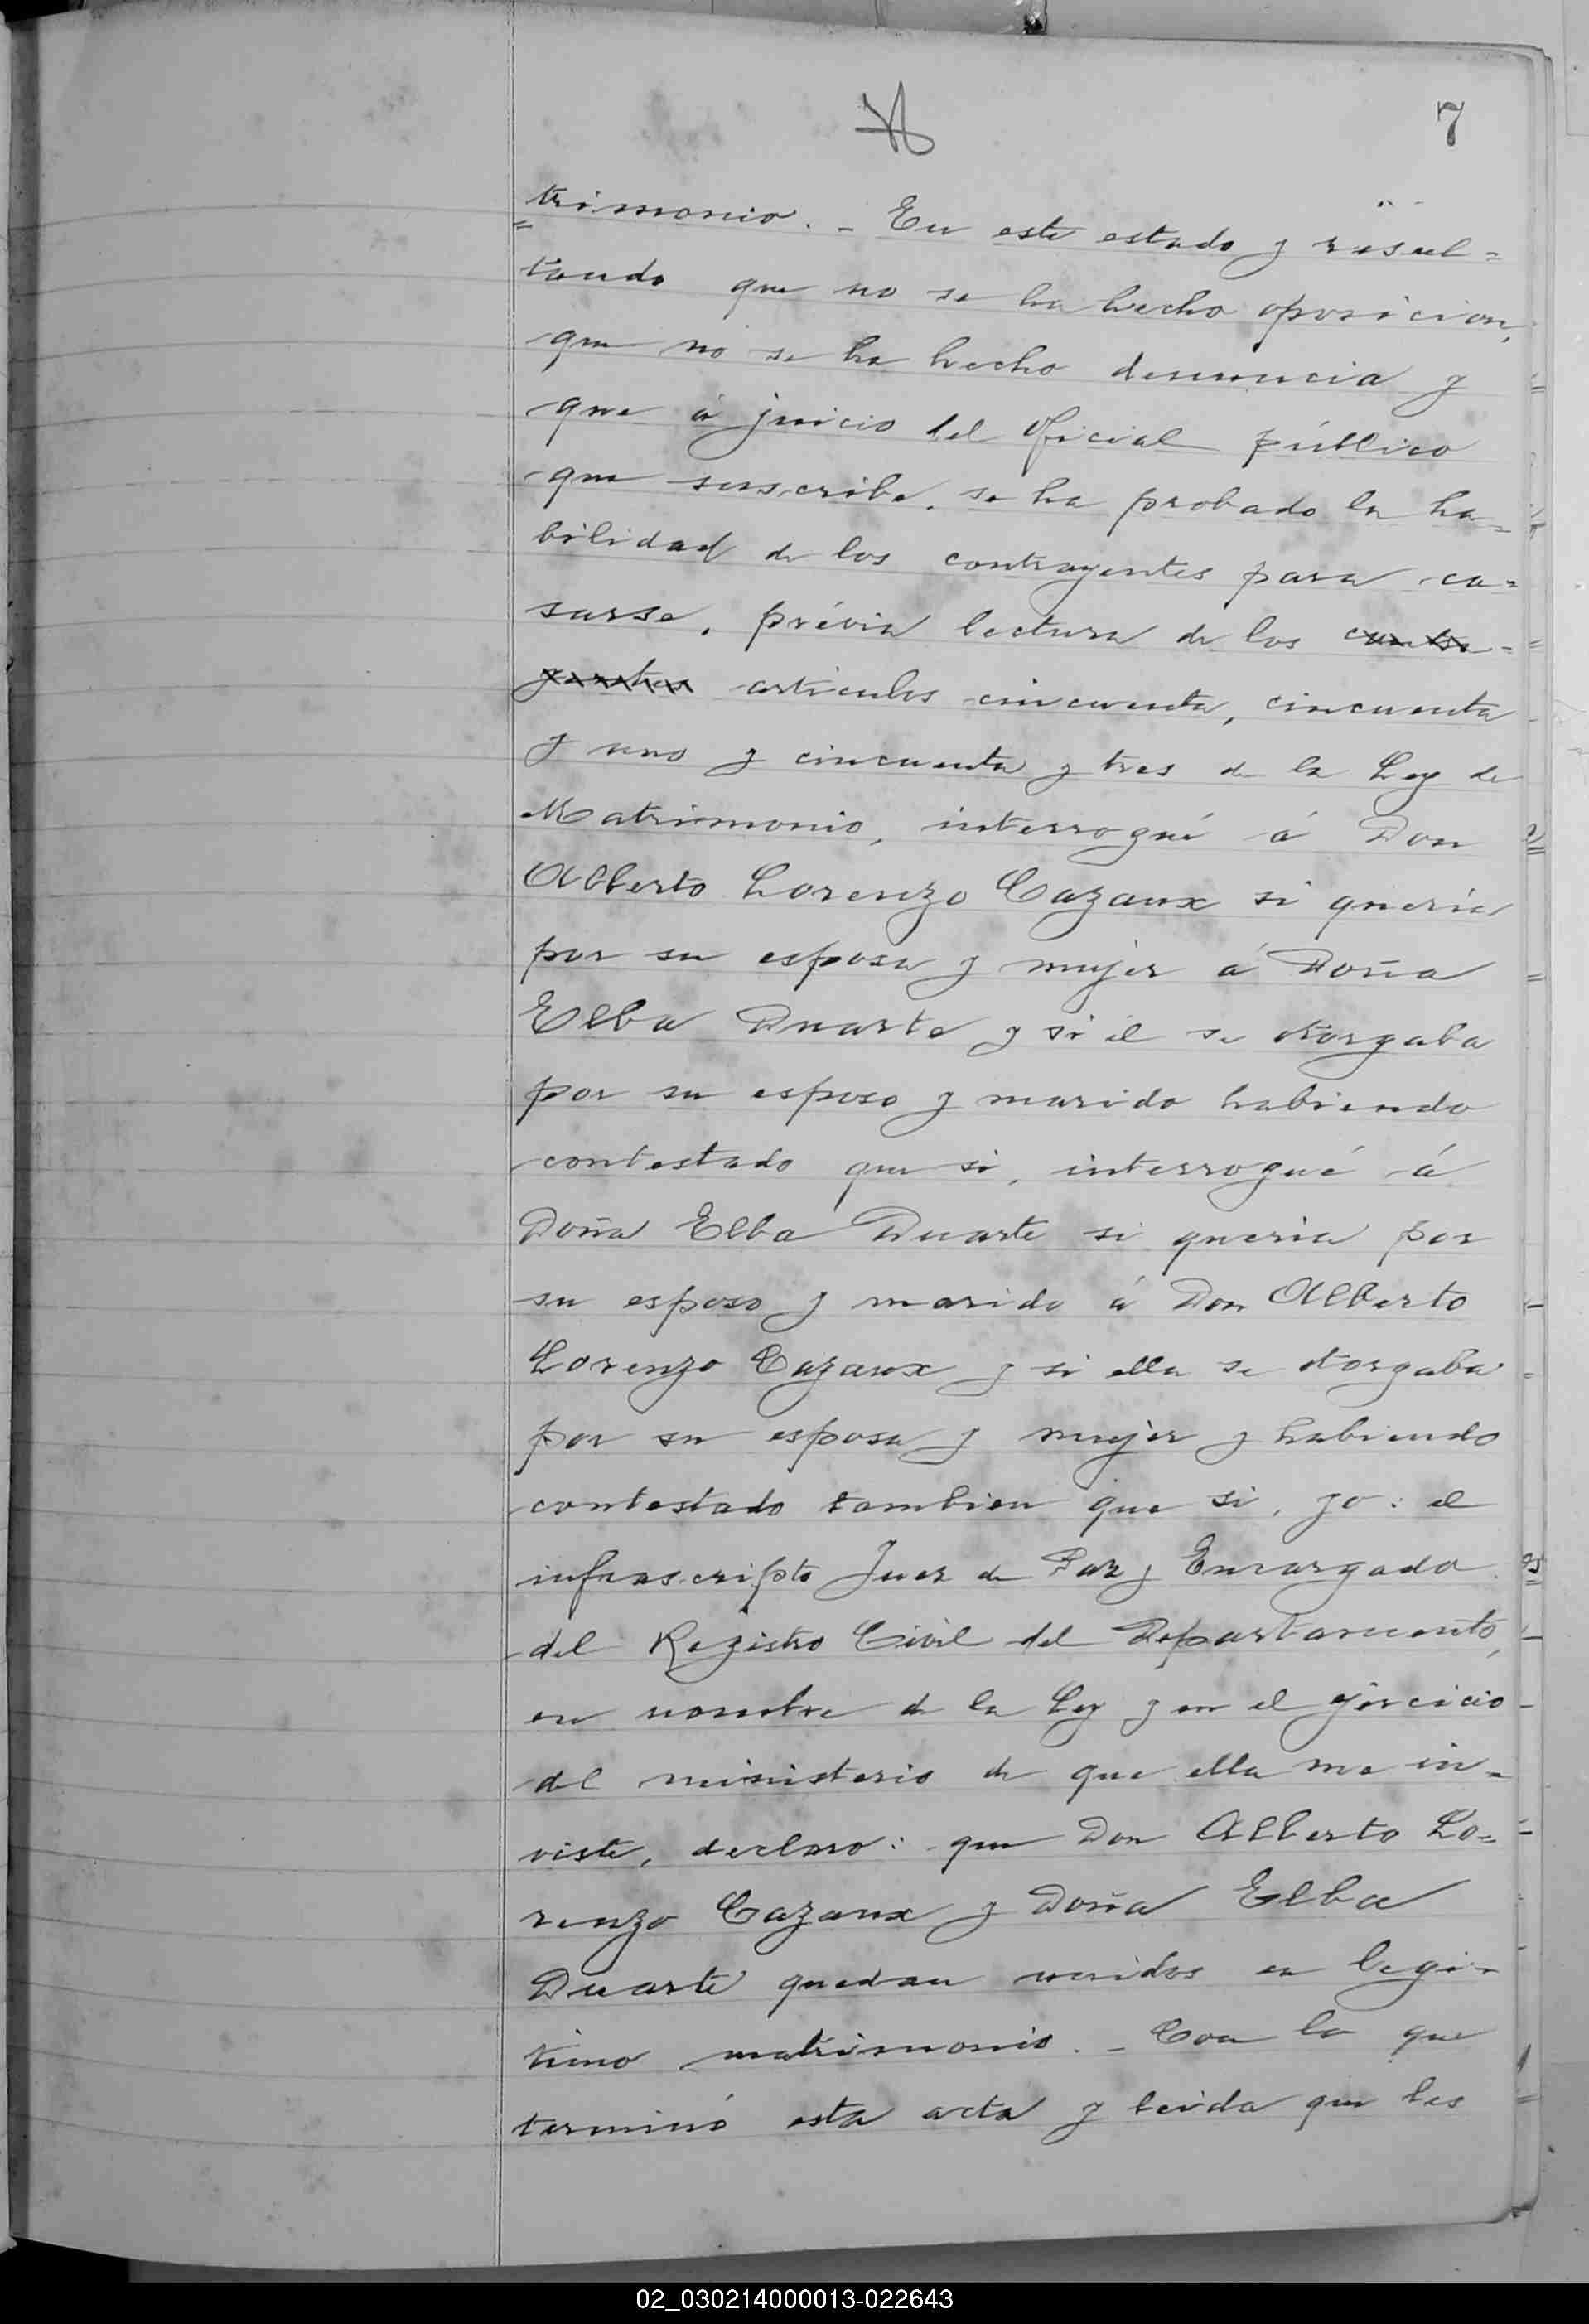 7
trimonio. - En este estado y resul=
tando que no se ha hecho oposicion,
que no se ha hecho denuncia y
que á juicio del oficial público
que suscribe, se ha probado la ha=
bilidad de los contrayentes para ca=
sarse, prévia lectura de los contra-
yentes articulos cincuenta, cincuenta
y uno y cincuenta y tres de la Ley de
Matrimonio, interrogué á Don
Alberto Lorenzo Cazaux si queria
por su esposa y mujer á Doña
Elba Duarte y si él se otorgaba
por su esposo y marido habiendo
contestado que si, interrogué á
Doña Elba Duarte si queria por
su esposo y marido á Don Alberto
Lorenzo Cazaux y si ella se otorgaba
por su esposa y mujer y habiendo
contestado tambien que si, yo: el
infrascripto Juez de Paz y Encargado
del Registro Civil del Departamento,
en nombre de la Ley y en el ejercicio
del ministerio de que ella me in=
viste, declaro: que Don Alberto Lo=
renzo Cazaux y Doña Elba
Duarte quedan unidos en legi=
timo matrimonio. - Con lo que
terminó esta acta y leida que les
02_030214000013-022643